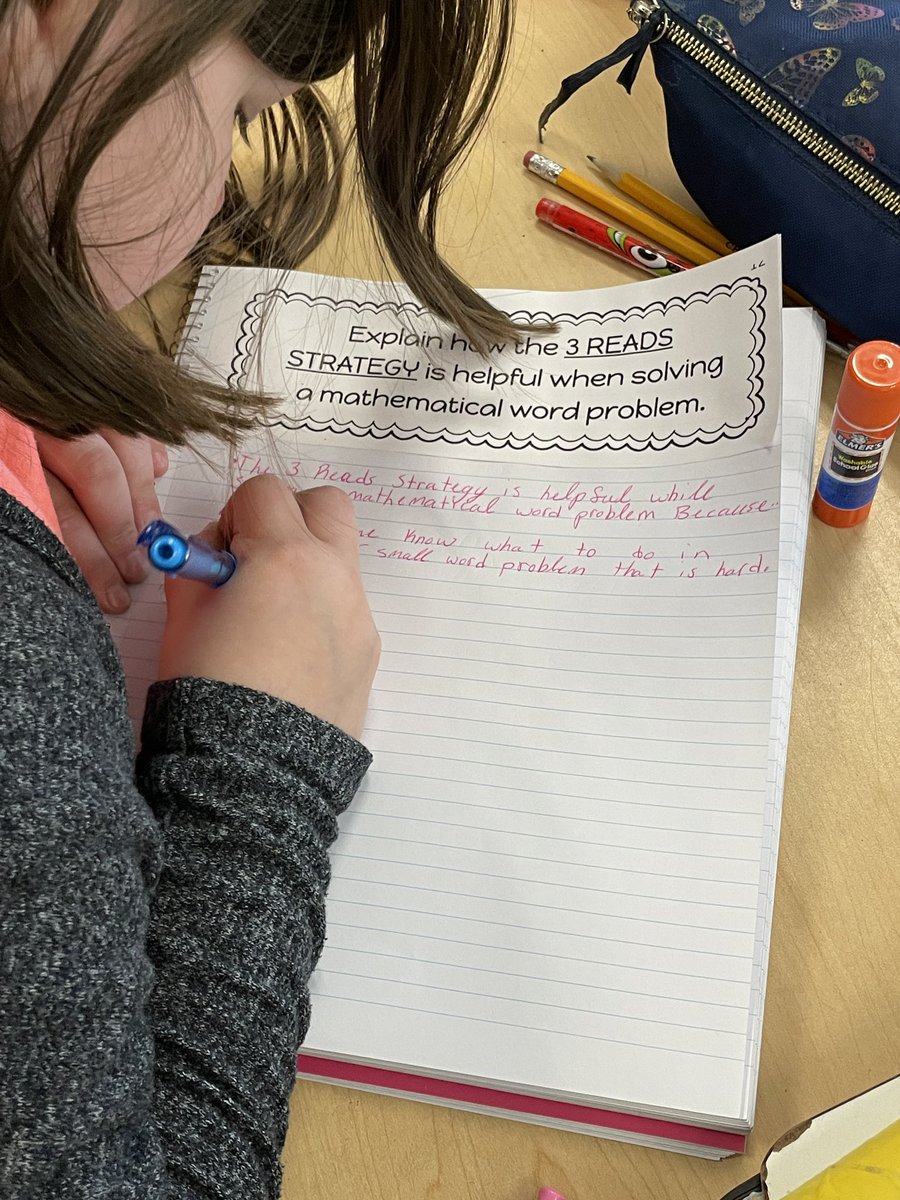 Explain how the 3 READS
STRATEGY is helpful when solving
a mathematical word problem.
The 3 Reads Strategy is helpful whill
mathematical word problem Because..
know what to do in
small word problem that is hard.
ELMER'S
Washable
School Glue